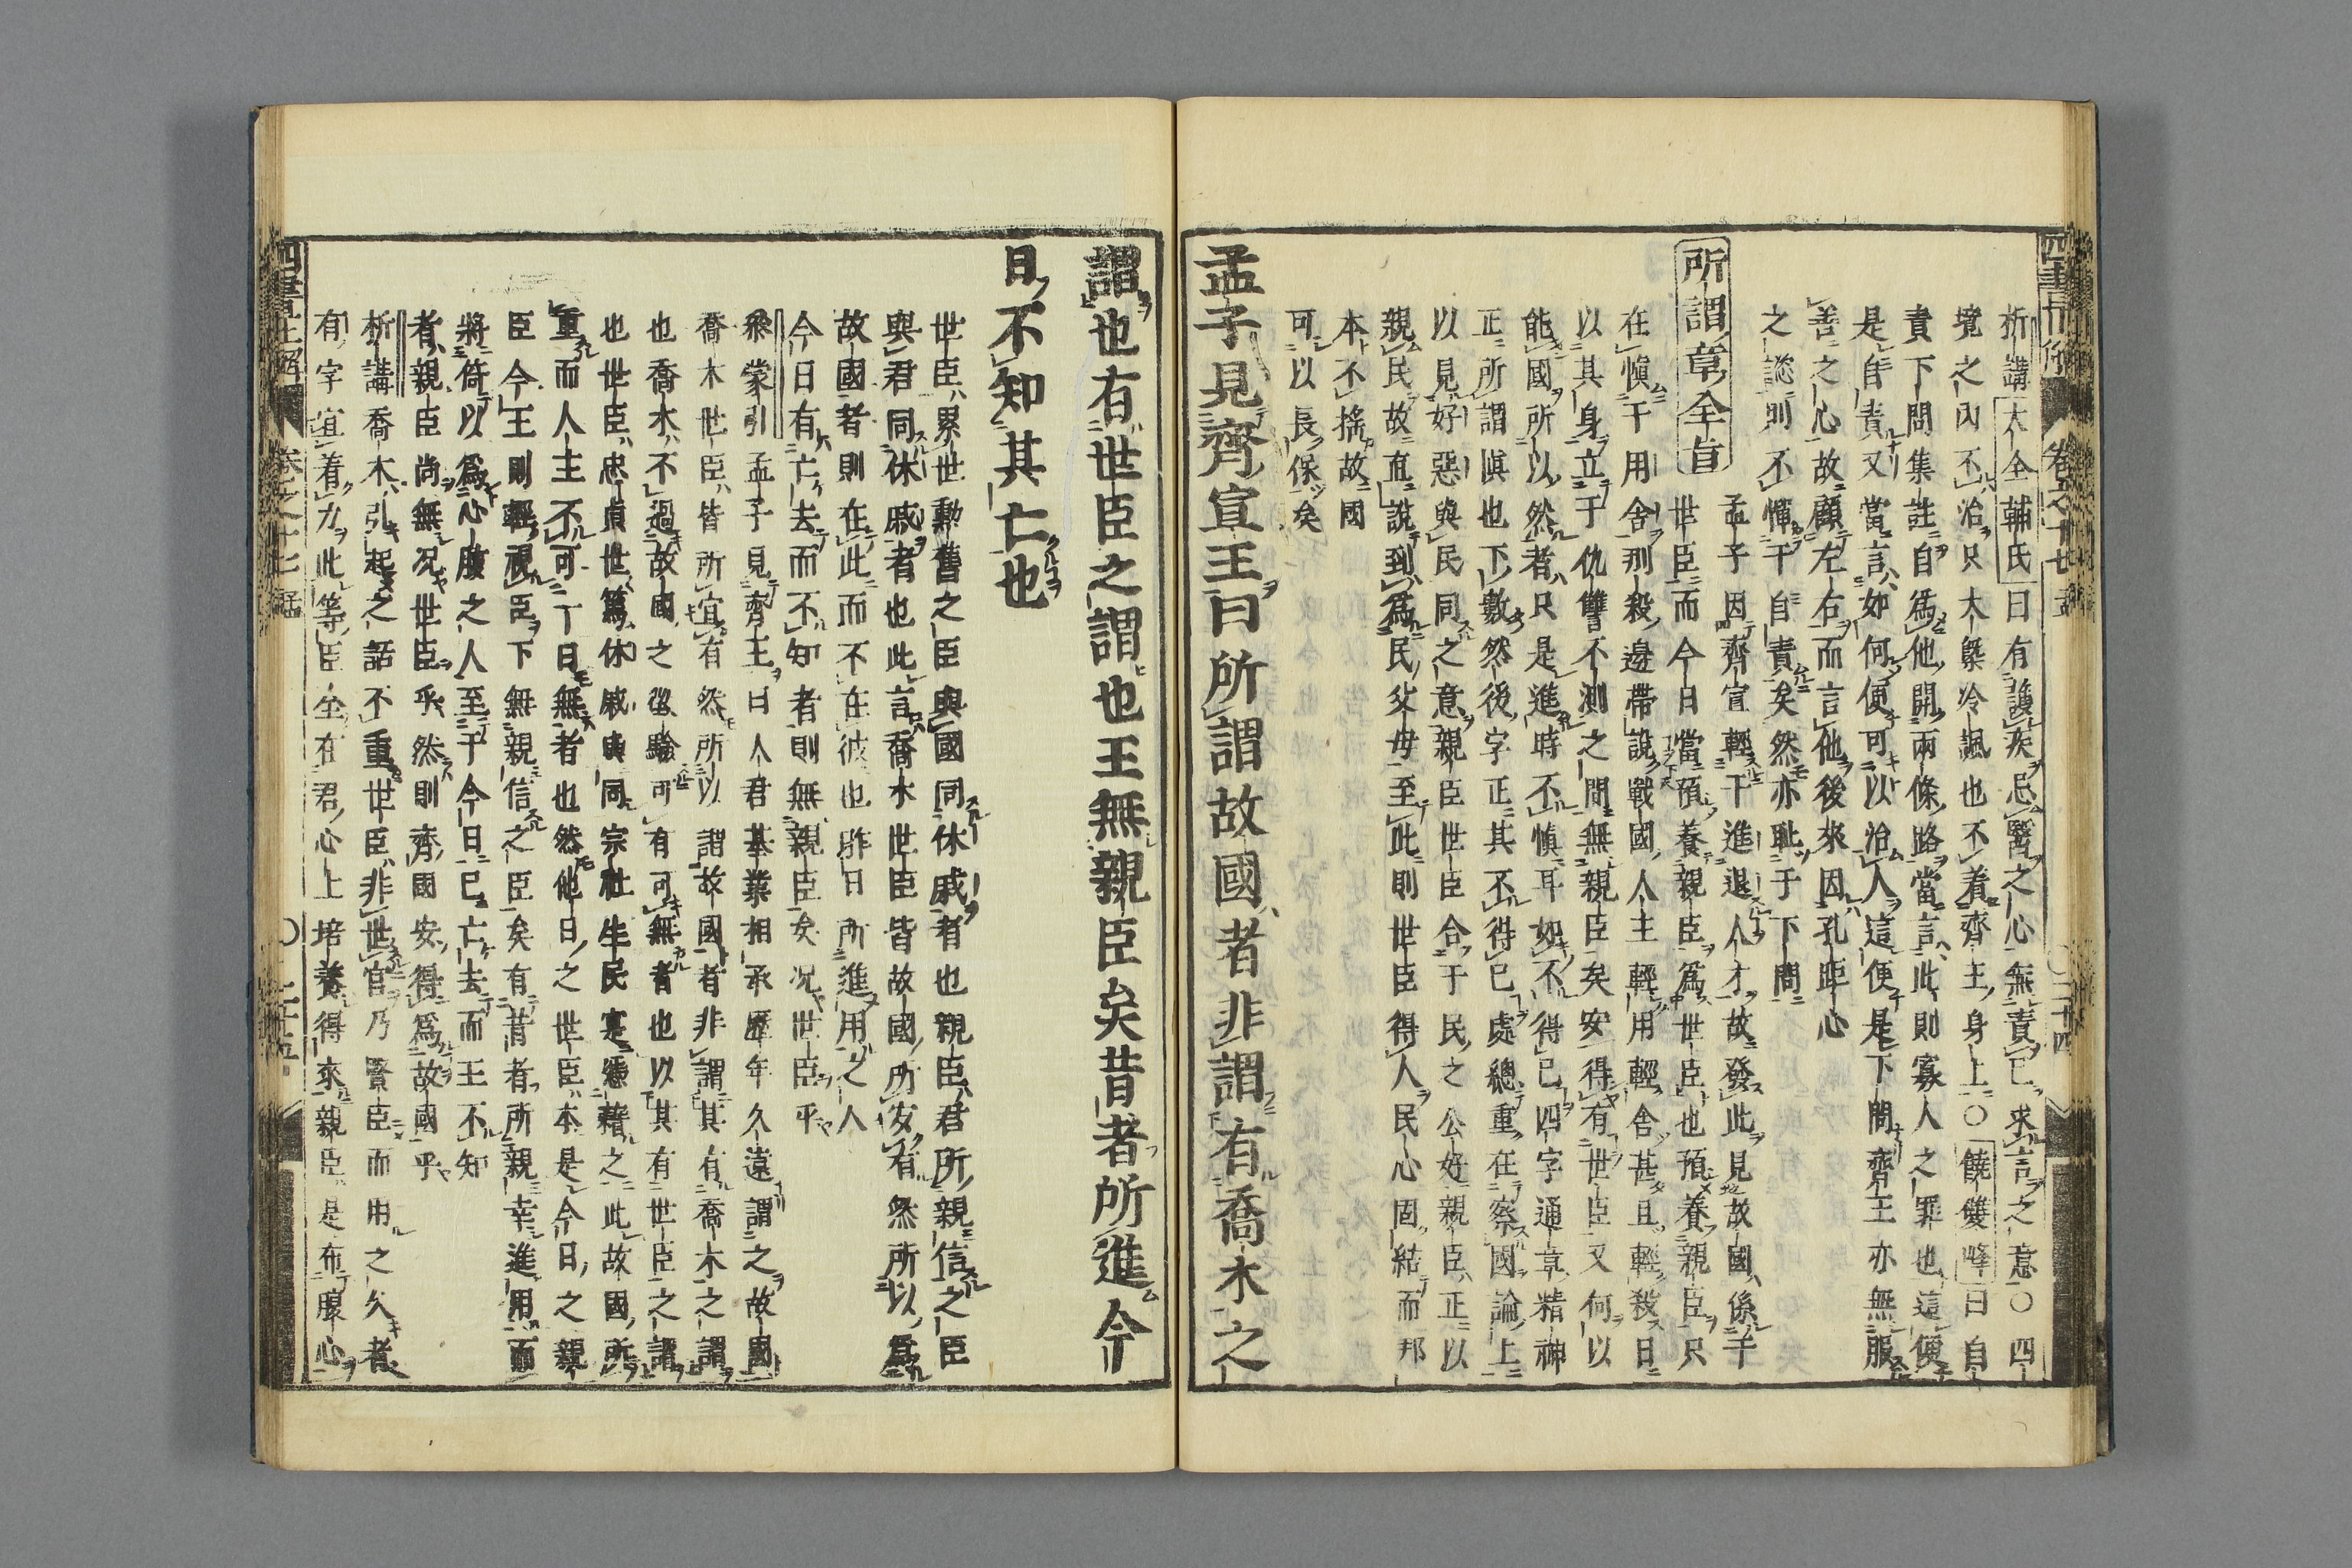 析講大全輔氏曰有護疾忌醫之心無責己求言之意〇四
境之內不治只大槩冷諷也不着齊王身上〇饒雙峰曰自
責下問集註自爲他開兩條路當言此則寡人之罪也這便
是自責又當言如何便可以治人這便是下問齊王亦無服
善之心故顧左右而言他後來因孔距心
之愬則不憚于自責矣然亦耻于下問
所謂章全旨
孟子因齊宣輕于進退人才故發此見故國係于
世臣而今日當預養親臣爲世臣也預養親臣只
在愼于用舍刑殺邊帶說戰國人主輕用輕舍甚且輕殺日
以其身立于仇讐不測之間無親臣矣安得有世臣又何以
能國所以然者只是進時不愼耳如不得已四字通章精神
正所謂愼也下數然後字正其不得已處總重在察國論上
以見好惡與民同之意親臣世臣合于民之公好親臣正以
親民故直說到爲民父母至此則世臣得人民心固結而邦
本不搖故國
可以長保矣
孟子見齊宣王曰所謂故國者非謂有喬木之
謂也有世臣之謂也王無親臣矣昔者所進今
日不知其亡也
世臣累世勳舊之臣與國同休戚者也親臣君所親信之臣
與君同休戚者也此言喬木世臣皆故國所宜有然所以爲
故國者則在此而不在彼也昨日所進用之人
今日有亡去而不知者則無親臣矣况世臣乎
蒙引孟子見齊王曰人君基業相承歷年久遠謂之故國
喬木世臣皆所宜有然所以謂故國者非謂其有喬木之謂
也喬木不過故國之徵驗可有可無者也以其有世臣之謂
也世臣忠貞世篤休戚與同宗社生民寔憑藉之此故國所
重而人主不可一日無者也然他日之世臣本是今日之親
臣今王則輕視臣下無親信之臣矣有昔者所親幸進用而
將倚以爲心腹之人至于今日已亡去而王不知
者親臣尚無况世臣乎然則齊國安得爲故國乎
析講喬木引起之話不重世臣非世官乃賢臣而用之久者
有字宜着力此等臣全在君心上培養得來親臣是布腹心